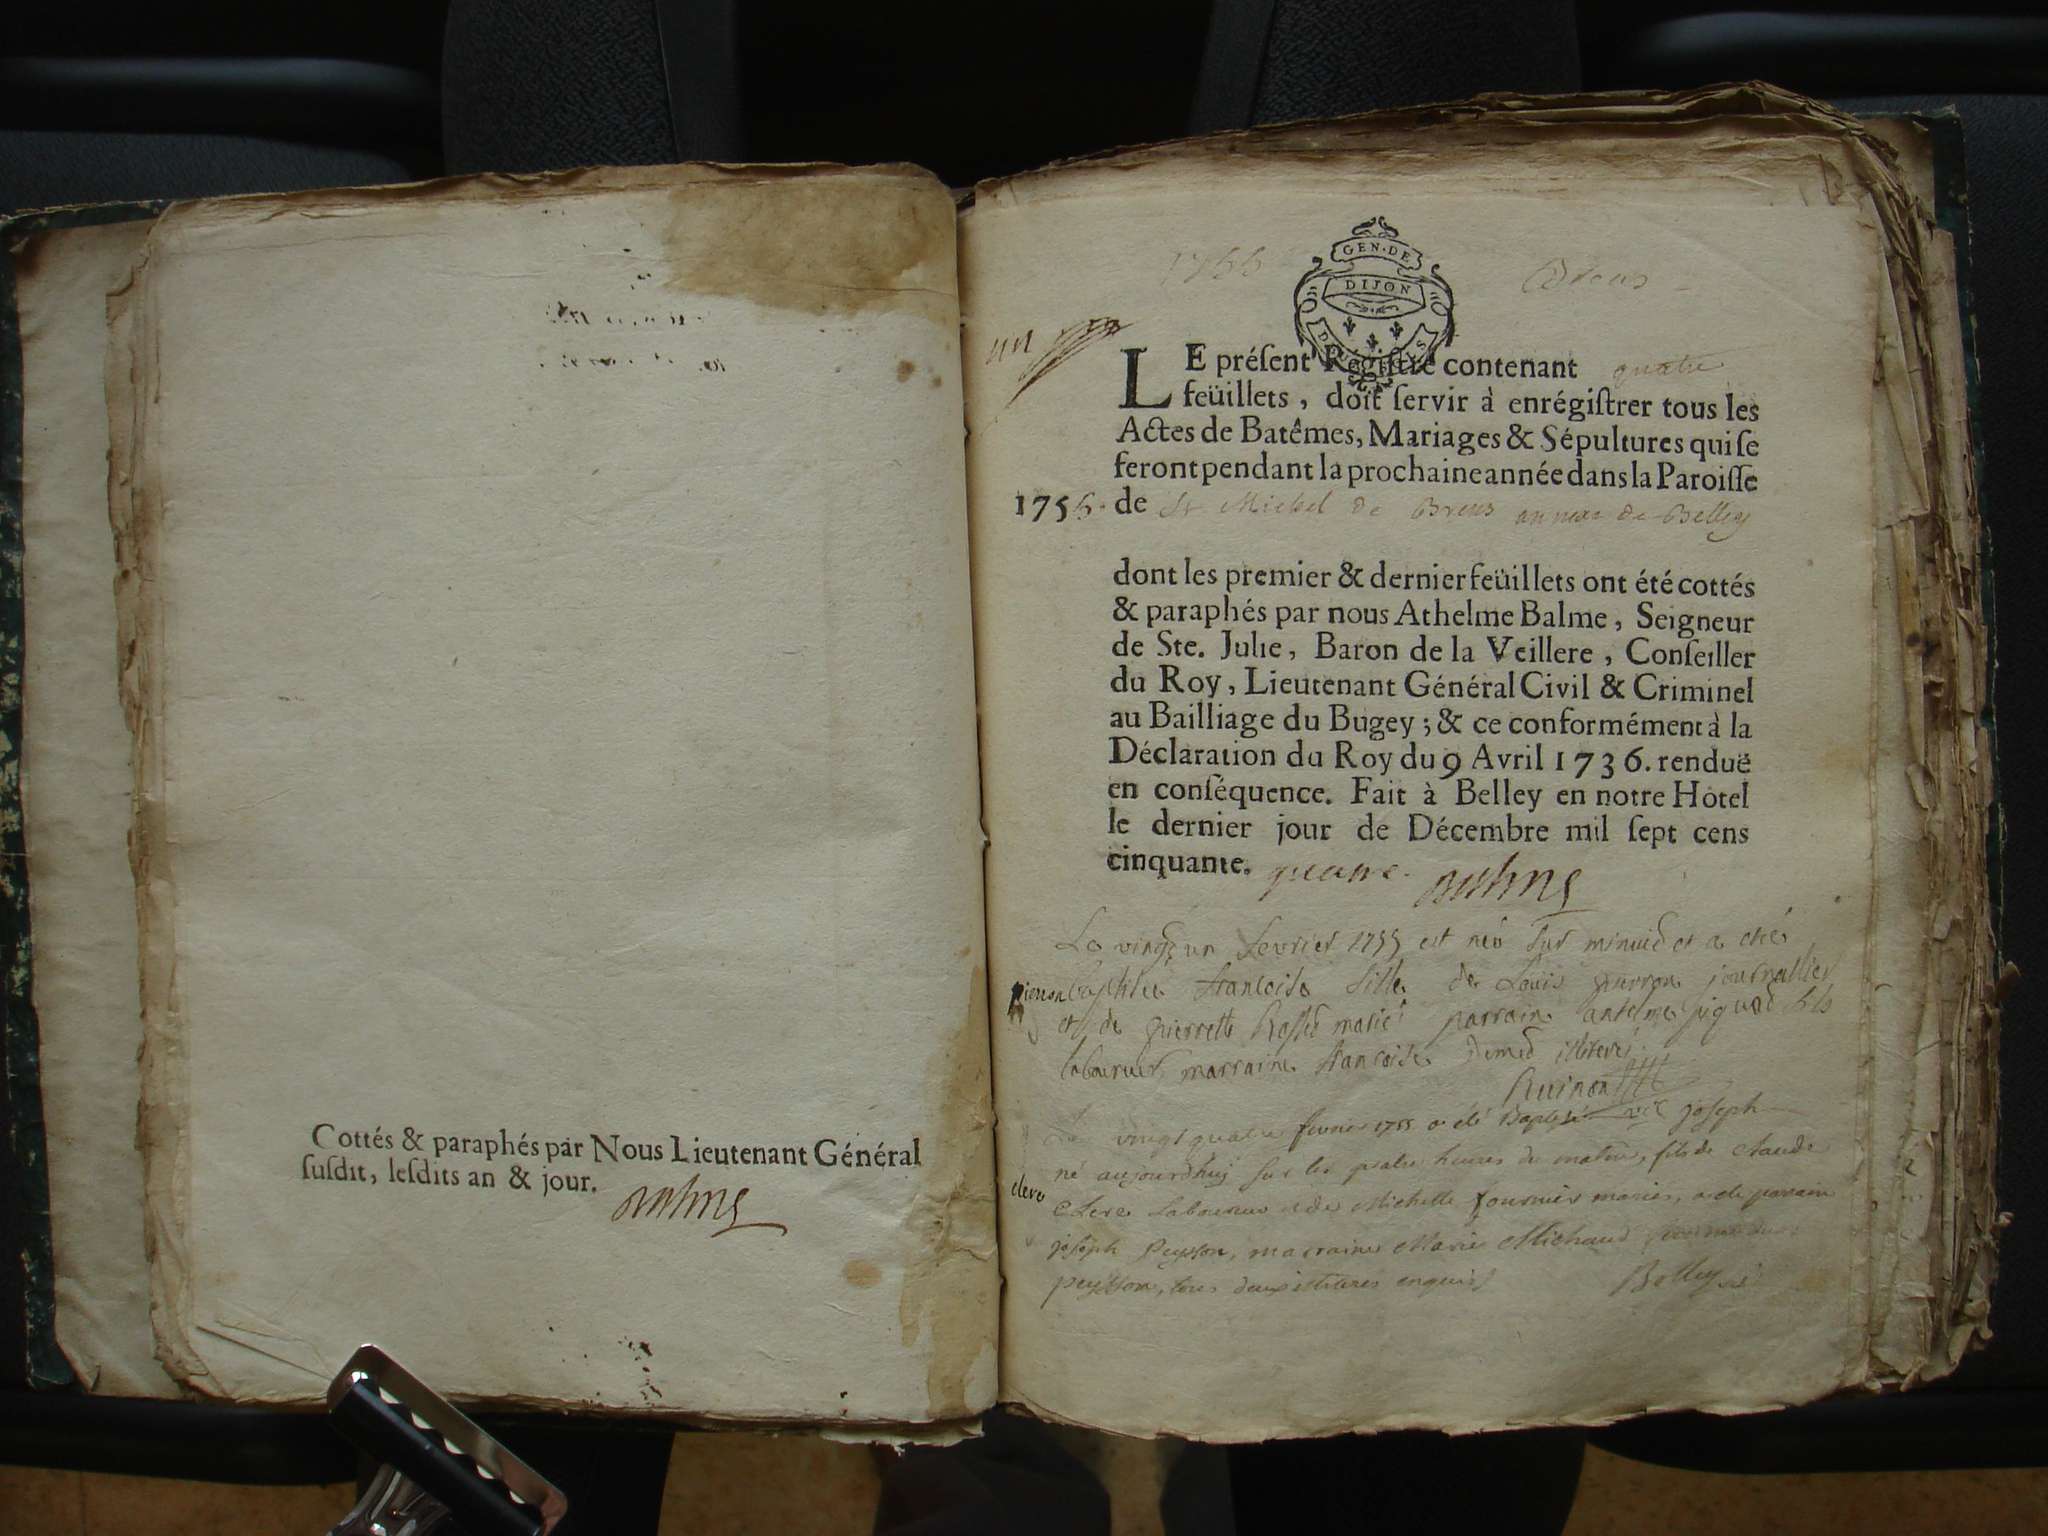 Cottés & paraphés par Nous Lieutenant Général
susdit, lesdits an & jour.
1755
Brens
GEN·DE
DIJON
un
LE présent Registre contenant quatre
feüillets, doit servir à enrégistrer tous les
Actes de Batêmes, Mariages & Sépultures qui se
feront pendant la prochaine année dans la Paroisse
1755. de St Michel de Brens annexe de Belley
dont les premier & dernier feüillets ont été cottés
& paraphés par nous Athelme Balme, Seigneur
de Ste. Julie, Baron de la Veillere, Conseiller
du Roy, Lieutenant Général Civil & Criminel
au Bailliage du Bugey; & ce conformément à la
Déclaration du Roy du 9 Avril 1736. renduë
en conséquence. Fait à Belley en notre Hôtel
le dernier jour de Décembre mil sept cens
cinquante. quatre.
Le vingt un fevrier 1755 est née sur minuid et a eté
pierron baptisée francoise fille de Louis pierron journallier
et de pierrette mariés parrain antelme fils
laboureur marraine francoise
Le vingt quatre fevrier 1755 a été Baptisé joseph
né aujourd'huy sur les quatre heures du matin, fils de claude
clere Clere Laboureur et de Michelle fournier mariés, a eté parrain
joseph Peysson, marraine Marie Michaud
peysson, tous deux illiteres enquis Bolley